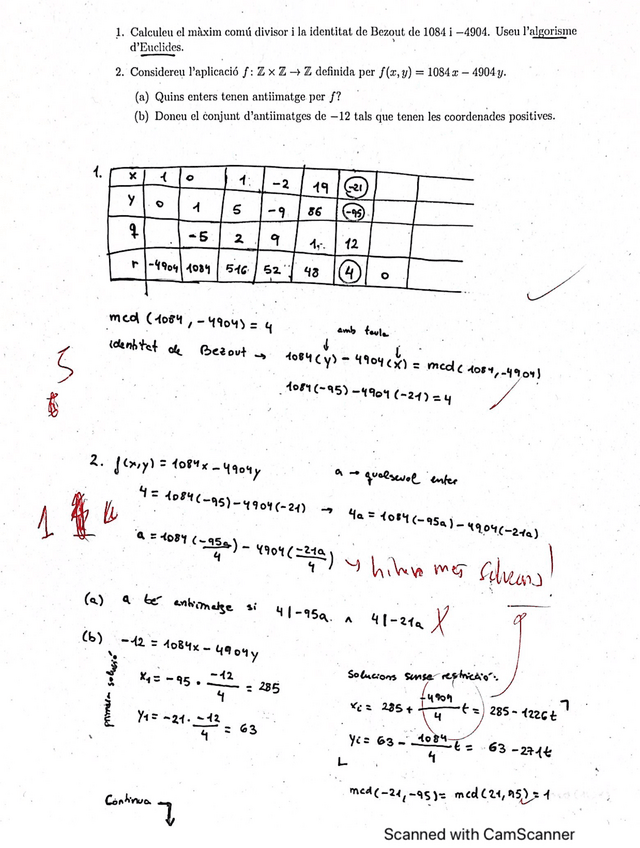 1. Calculeu el màxim comú divisor i la identitat de Bezout de 1084 i −4904. Useu l'algorisme
d'Euclides.
2. Considereu l'aplicació f: ℤ × ℤ → ℤ definida per f(x, y) = 1084 x − 4904 y.
(a) Quins enters tenen antiimatge per f?
(b) Doneu el conjunt d'antiimatges de −12 tals que tenen les coordenades positives.
1.
x 1 0 1 -2 19 -21
y 0 1 5 -9 86 -95
q -5 2 9 1 12
r -4904 1084 516 52 48 4 0
mcd (1084, -4904) = 4
amb taula
identitat de Bezout → 1084(y) - 4904(x) = mcd(1084,-4904)
1084(-95) - 4904(-21) = 4
5
2. f(x,y) = 1084x - 4904y
a → qualsevol enter
4 = 1084(-95) - 4904(-21) → 4a = 1084(-95a) - 4904(-21a)
1
a = 1084(-95a/4) - 4904(-21a/4) → hi ha més solucions!
(a) a té antiimatge si 4|-95a ∧ 4|-21a
(b) -12 = 1084x - 4904y
primera solució
x1 = -95 · -12/4 = 285
y1 = -21 · -12/4 = 63
Solucions sense restricció:
?
xi = 285 + -4904/4 t = 285 - 1226t
yi = 63 - 1084/4 t = 63 - 271t
mcd(-21,-95) = mcd(21,95) = 1
Continua
Scanned with CamScanner